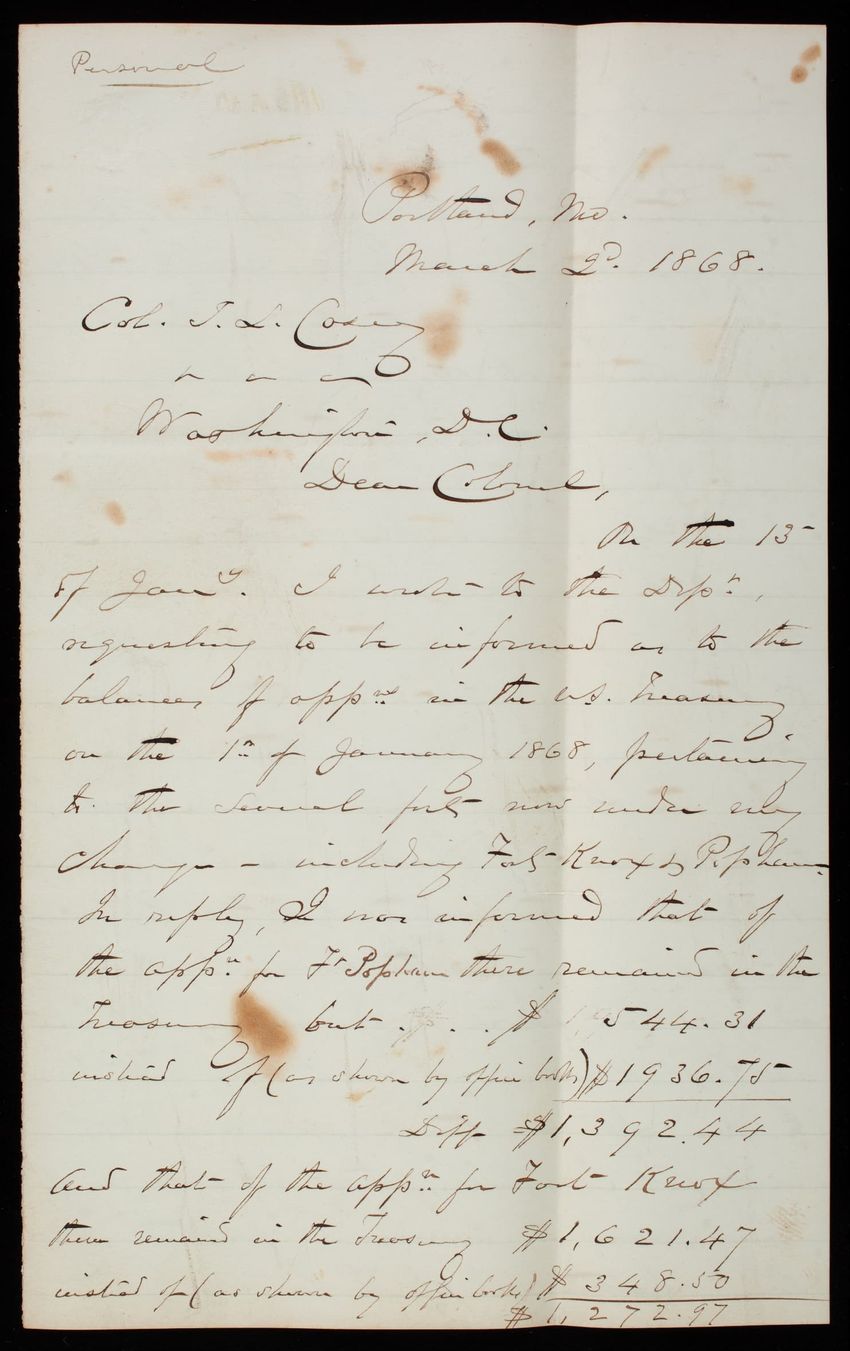 Personal
Portland, Me.
March 2d. 1868.
Col. T. L. Casey
" " "
Washington, D.C.
Dear Colonel,
On the 15
of Jany. I wrote to the Dept.,
requesting to be informed as to the
balances of appns in the U.S. Treasury
on the 1st of January 1868, pertaining
to the several forts now under my
charge - including Forts Knox & Popham.
In reply, I was informed that of
the appn. for Ft Popham there remained in the
Treasury but . . . $ 544.31
instead of (as shown by office books) $1936.75
Diff $1,392.44
and that of the appn. for Fort Knox
there remained in the Treasury $1,621.47
instead of (as shown by office books) $ 348.50
$1,272.97